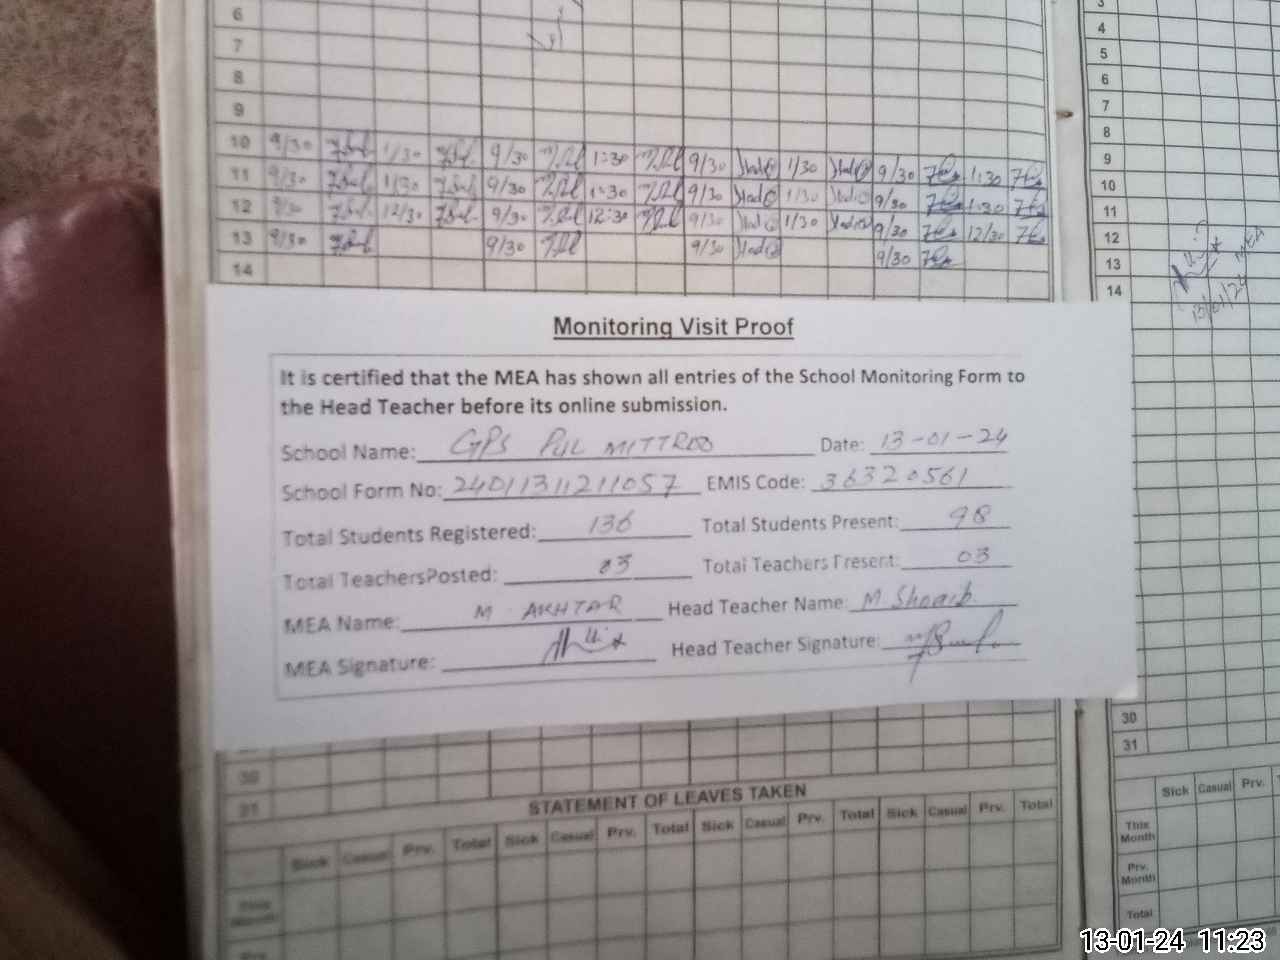 6
7
8
9
10 9/30 1/30 9/30 1:30 9/30 1/30 9/30 1:30
11 9/30 1/30 9/30 1:30 9/30 1/30 9/30 1:30
12 9/30 12/30 9/30 12:30 9/30 1/30 9/30 12/30
13 9/30 9/30 9/30 9/30
14
Monitoring Visit Proof
It is certified that the MEA has shown all entries of the School Monitoring Form to
the Head Teacher before its online submission.
School Name: GPS PUL MITTROO Date: 13-01-24
School Form No: 24011311211057 EMIS Code: 36320561
Total Students Registered: 136 Total Students Present: 98
Total TeachersPosted: 03 Total Teachers Present: 03
MEA Name: M. AKHTAR Head Teacher Name: M Shoaib.
MEA Signature: Head Teacher Signature:
30
31
STATEMENT OF LEAVES TAKEN
Sick Casual Prv. Total Sick Casual Prv. Total Sick Casual Prv. Total Sick Casual Prv. Total
This
Month
Prv.
3
4
5
6
7
8
9
10
11
12
13
14
MEA
13/01/24
30
31
Sick Casual Prv.
This
Month
Prv.
Month
Total
13-01-24 11:23